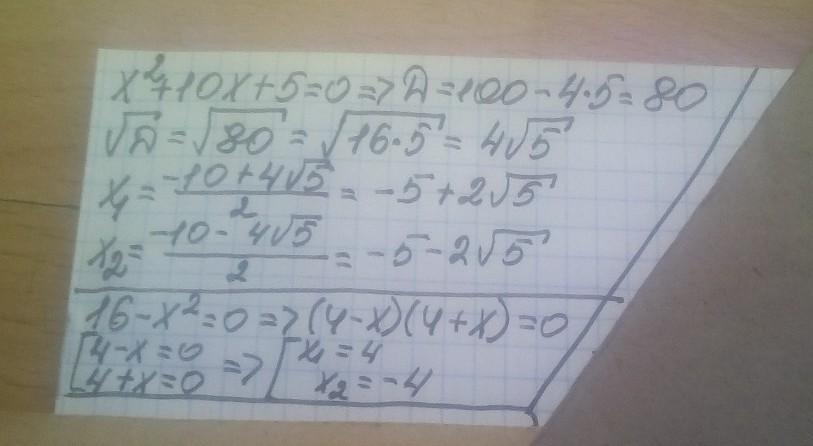 x²+10x+5=0 => D=100-4·5=80
√D=√80=√16·5=4√5
x₁=(-10+4√5)/2=-5+2√5
x₂=(-10-4√5)/2=-5-2√5
16-x²=0 => (4-x)(4+x)=0
[4-x=0 => [x₁=4
4+x=0 x₂=-4